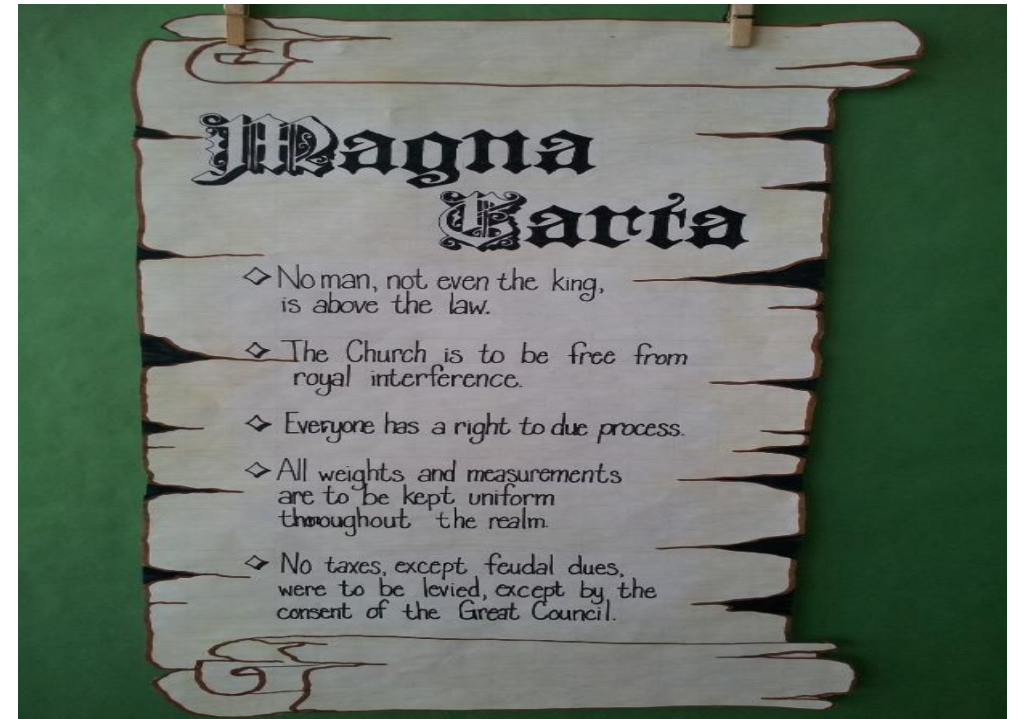 Magna
Carta
No man, not even the king,
is above the law.
The Church is to be free from
royal interference.
Everyone has a right to due process.
All weights and measurements
are to be kept uniform
throughout the realm.
No taxes, except feudal dues,
were to be levied, except by the
consent of the Great Council.